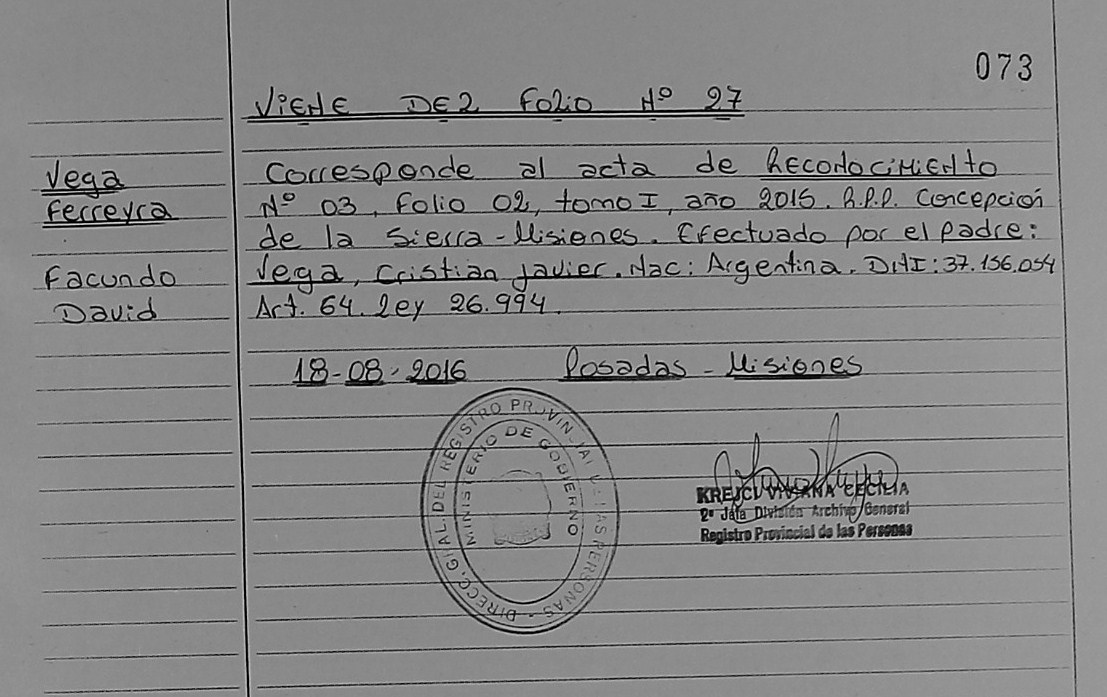 073
VIENE DEL FOLIO Nº 27
Vega
Ferreyra
Facundo
David
Corresponde al acta de RECONOCIMIENTO
Nº 03, Folio 02, tomo I, año 2016. R.P.P. Concepción
de la Sierra - Misiones. Efectuado por el Padre:
Vega, Cristian Javier. Nac: Argentina. DNI: 37.156.054
Art. 64. Ley 26.994.
18-08-2016 Posadas - Misiones
DIRECC. GRAL. DEL REGISTRO PROVINCIAL DE LAS PERSONAS
MINISTERIO DE GOBIERNO
KREJCI VIVIANA CECILIA
2º Jefa División Archivo General
Registro Provincial de las Personas